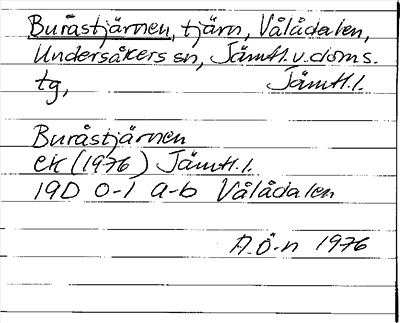 Buråstjärnen, tjärn, Vålådalen,
Undersåkers sn, Jämtl.v.doms.
tg, Jämtl.l.
Buråstjärnen
ek (1976) Jämtl.l.
19D 0-1 a-b Vålådalen
A.Ö-n 1976